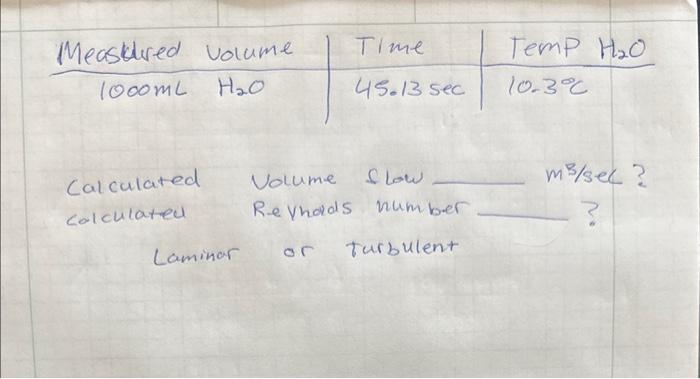 Measured Volume | Time | Temp H₂O
1000mL H₂O | 45.13 sec | 10.3°C
Calculated Volume flow ______ m³/sec?
Calculated Reynolds number ______ ?
Laminar or turbulent